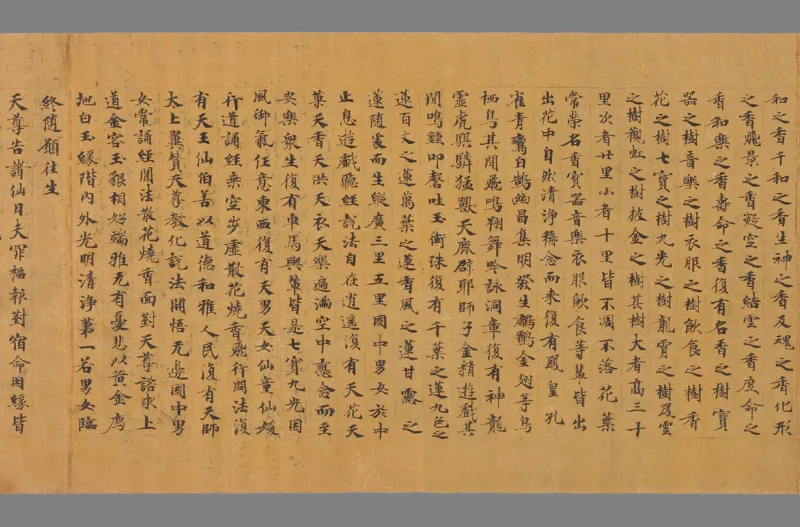 和之香千和之香生神之香反魂之香化形
之香飛景之香凝空之香結雲之香度命之
香和樂之香壽命之香復有名香之樹寶
器之樹音樂之樹衣服之樹飲食之樹香
花之樹七寶之樹九光之樹龍霄之樹鳳雲
之樹觀虹之樹披金之樹其樹大者高三十
里次者廿里小者十里皆不凋不落花葉
常榮名香寶器音樂衣服飲食等輩皆出
出花中自然清淨稱念而来復有鳳皇孔
雀青鸞白鶴昌集明發生金翅等鳥
栖鳥其間飛鳴翔舞吟詠洞章復有神龍
靈虎騏驎猛獸天鹿辟耶師子金精遊戲其
間鳴鍾叩磬吐玉銜珠復有千葉之蓮九色之
蓮百丈之蓮萬葉之蓮香風之蓮甘露之
蓮随處而生縱廣三里五里國中男女於中
止息遊戲聽經說法自在逍遥復有天花天
菓天香天洪天衣天樂遍滿空中應念而至
安樂衆生復有車馬輿輦皆是七寶九光因
風御氣任意東西復有天男天女仙童仙
行道誦經乘空步虛散花燒香飛行聞法復
有天王仙伯善以道德和雅人民復有天師
大上翼賛天尊教化說法開悟无邊國中男
女常誦經聞法散花燒香面對天尊諮求上
道金容玉貌相好端雅无有憂悲以黄金為
地白玉緣階内外光明清淨第一若男女臨
終随願往生
天尊告諸仙曰夫罪福報對宿命因緣皆